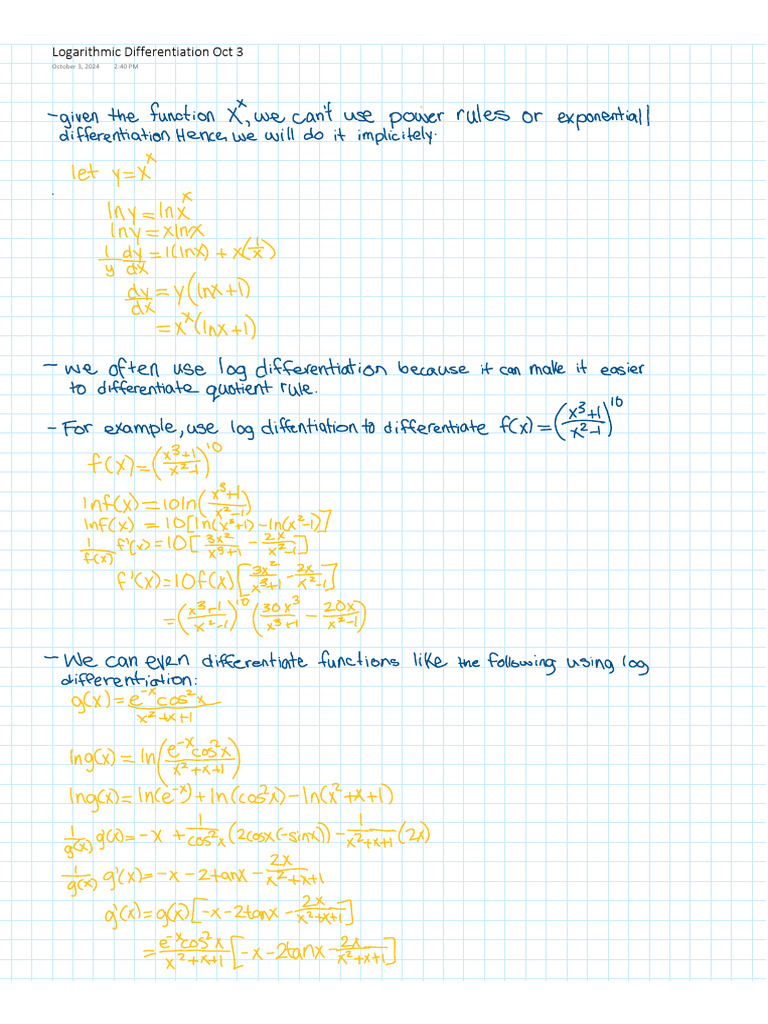 Logarithmic Differentiation Oct 3
October 3, 2024 2:40 PM
- given the function x^x, we can't use power rules or exponentiall
differentiation Hence, we will do it implicitely.
let y = x^x
ln y = ln x^x
ln y = x ln x
1/y dy/dx = 1(ln x) + x(1/x)
dy/dx = y(ln x + 1)
= x^x (ln x + 1)
- we often use log differentiation because it can make it easier
to differentiate quotient rule.
- For example, use log diffentiation to differentiate f(x) = ((x^3+1)/(x^2-1))^10
f(x) = ((x^3+1)/(x^2-1))^10
ln f(x) = 10 ln((x^3+1)/(x^2-1))
ln f(x) = 10[ln(x^3+1) - ln(x^2-1)]
1/f(x) f'(x) = 10[3x^2/(x^3+1) - 2x/(x^2-1)]
f'(x) = 10f(x)[3x^2/(x^3+1) - 2x/(x^2-1)]
= ((x^3+1)/(x^2-1))^10 (30x^3/(x^3+1) - 20x/(x^2-1))
- We can even differentiate functions like the following using log
differentiation:
g(x) = e^-x cos^2 x/(x^2+x+1)
ln g(x) = ln(e^-x cos^2 x/(x^2+x+1))
ln g(x) = ln(e^-x) + ln(cos^2 x) - ln(x^2+x+1)
1/g(x) g(x) = -x + 1/cos^2 x (2cosx(-sinx)) - 1/(x^2+x+1) (2x)
1/g(x) g'(x) = -x - 2tanx - 2x/(x^2+x+1)
g'(x) = g(x)[-x - 2tanx - 2x/(x^2+x+1)]
= e^-x cos^2 x/(x^2+x+1) [-x - 2tanx - 2x/(x^2+x+1)]